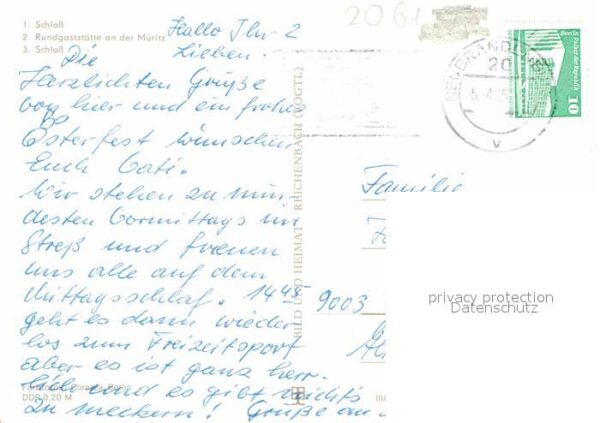 1. Schloß
2. Rundgaststätte an der Müritz
3. Schloß
2061
Hallo Ihr 2
Lieben.
Die
Herzlichsten Grüße
von hier und ein frohes
Osterfest wünschen
Euch
Wir stehen zu min
desten Vormittags im
Streß und freuen
uns alle auf dem
Mittagsschlaf. 14 45
geht es dann wieder
los zum Freizeitsport
aber es ist ganz herr-
lich und es gibt nichts
zu meckern! Grüße an
Berlin
DDR 0,20 M
BILD UND HEIMAT REICHENBACH (VOGTL)
III/
NEUBRANDENBURG
20
Berlin, Palast der Republik
10
Familie
9003
privacy protection
Datenschutz